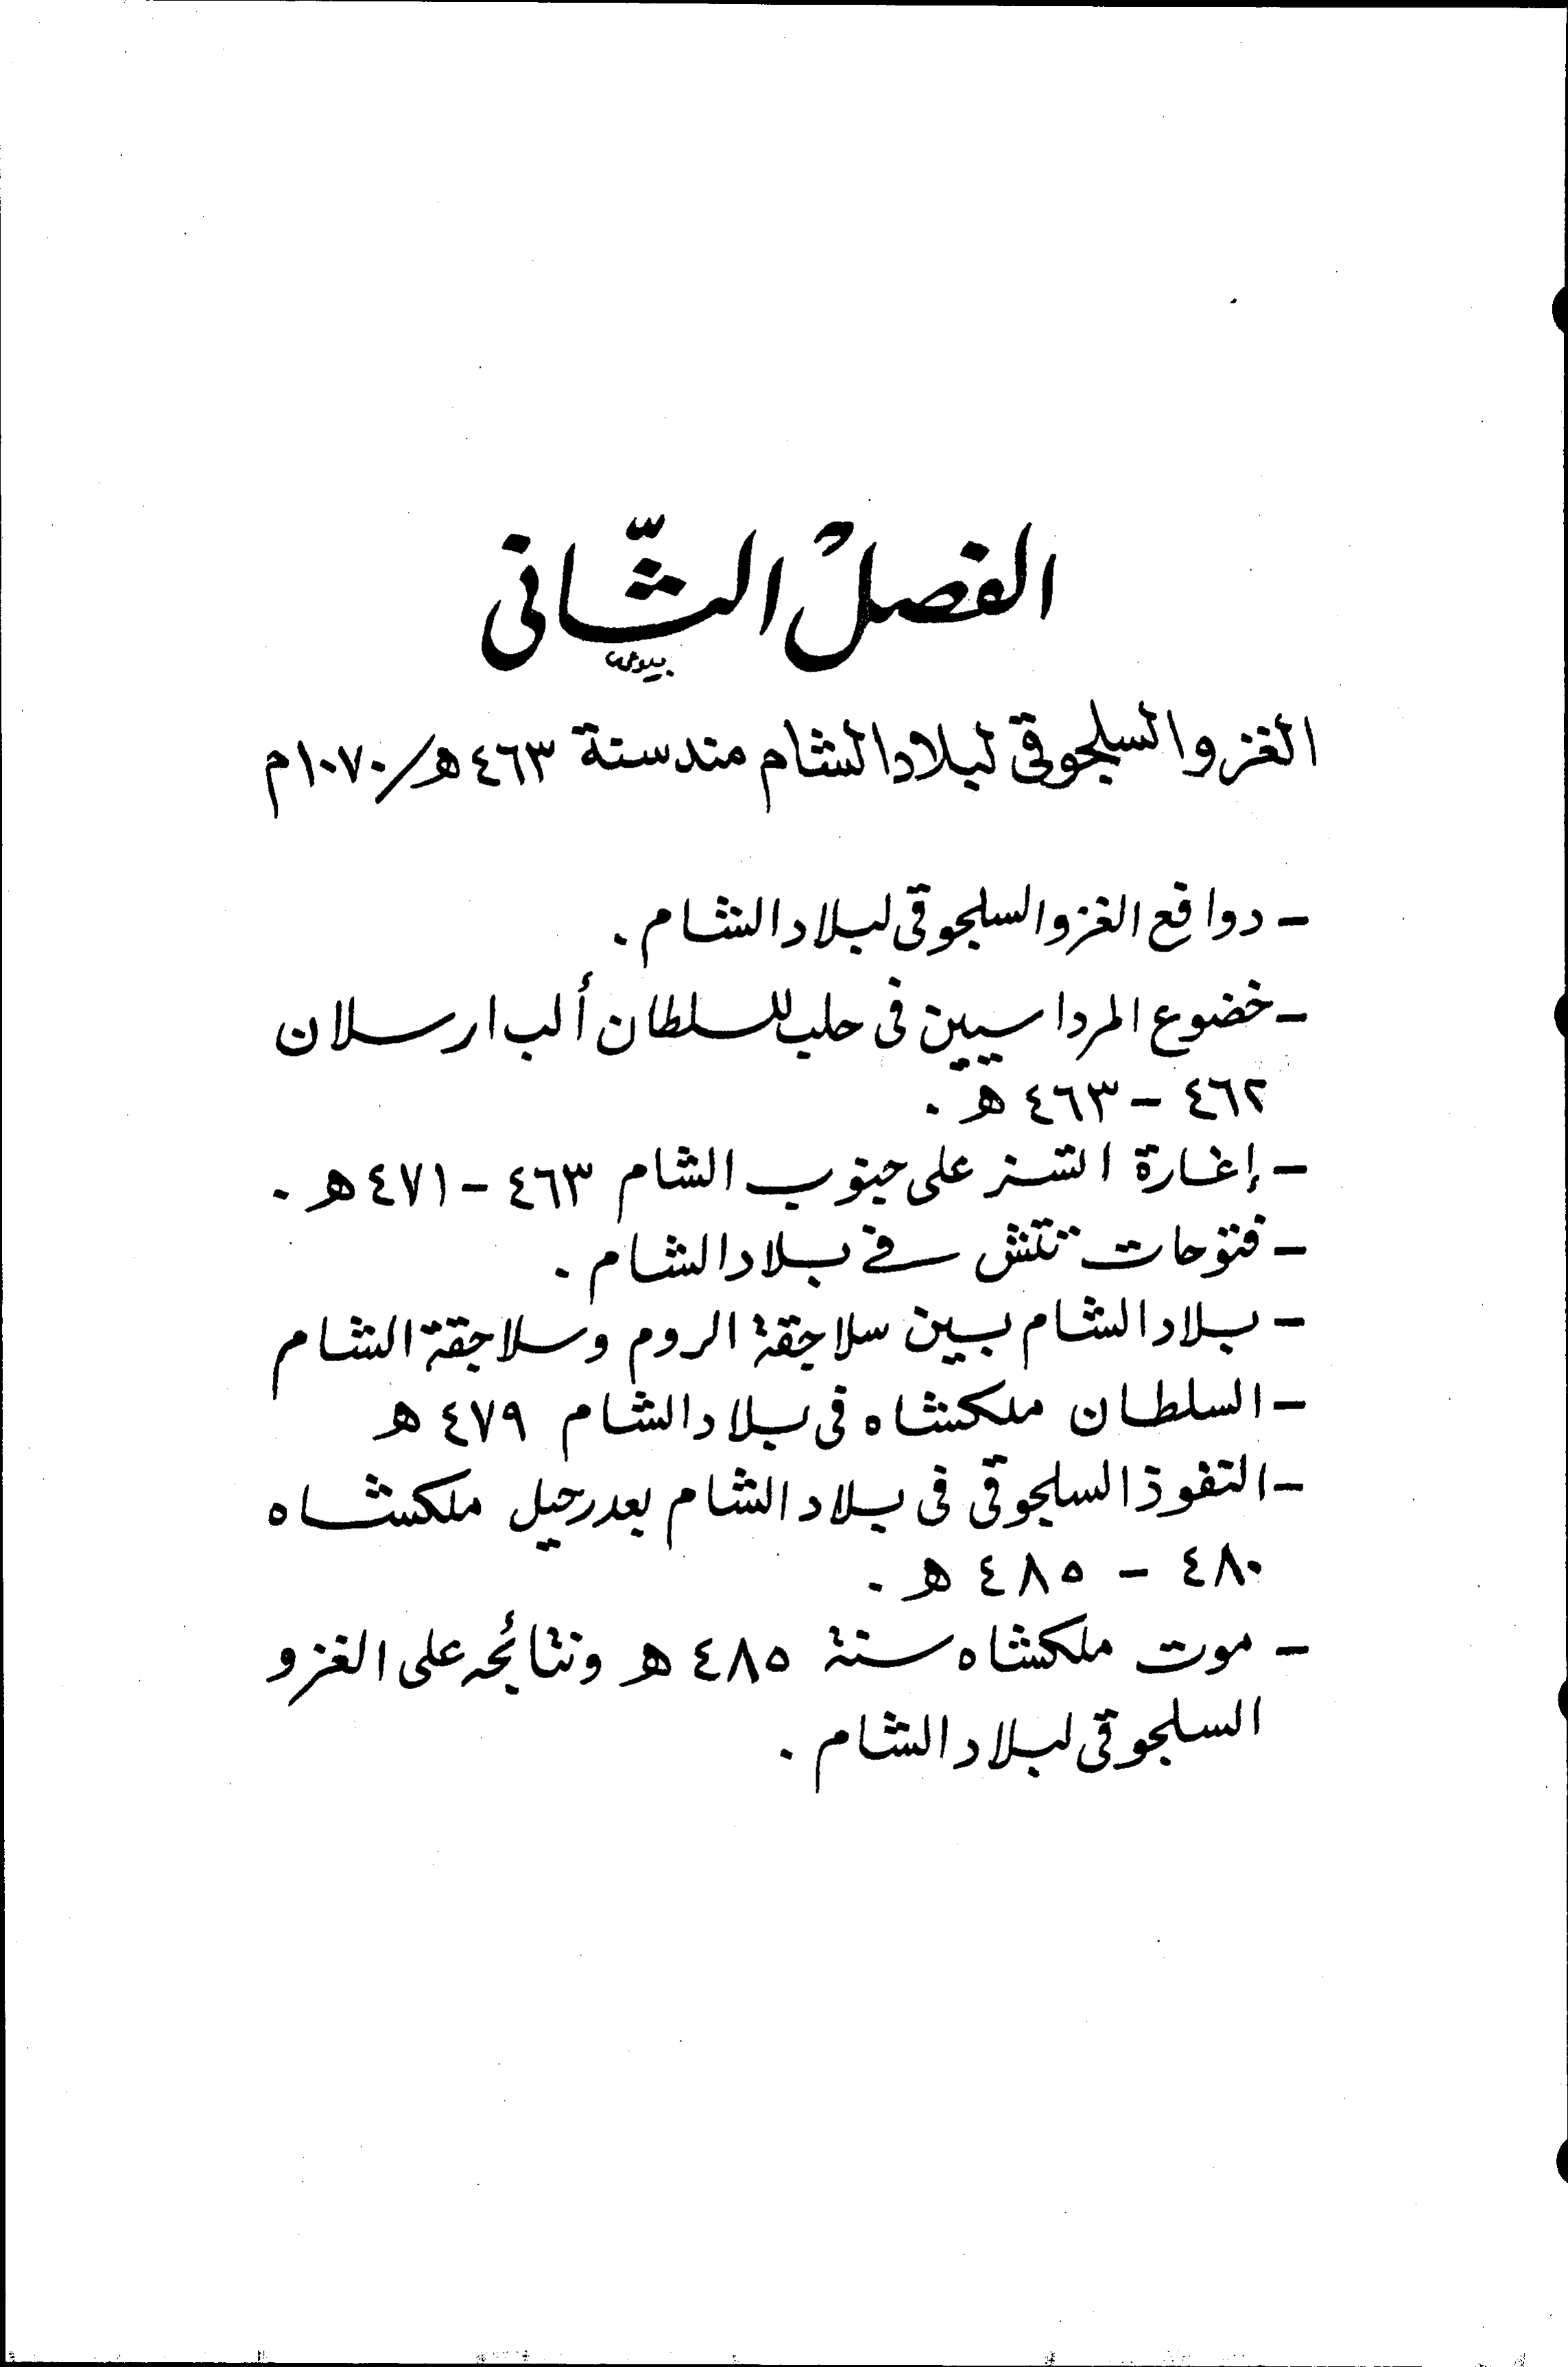 الفصلُ الثّاني
الغزو السلجوقي لبلاد الشام منذ سنة ٤٦٣ هـ/ ١٠٧٠م
- دوافع الغزو السلجوقي لبلاد الشام .
- خضوع المرداسيين في حلب للسلطان ألب ارسلان
٤٦٢ - ٤٦٣ هـ .
- إغارة اتسز على جنوب الشام ٤٦٣ - ٤٧١ هـ .
- فتوحات تتش في بلاد الشام .
- بلاد الشام بين سلاجقة الروم وسلاجقة الشام
- السلطان ملكشاه في بلاد الشام ٤٧٩ هـ
- النفوذ السلجوقي في بلاد الشام بعد رحيل ملكشاه
٤٨٠ - ٤٨٥ هـ .
- موت ملكشاه سنة ٤٨٥ هـ ونتائجه على الغزو
السلجوقي لبلاد الشام .